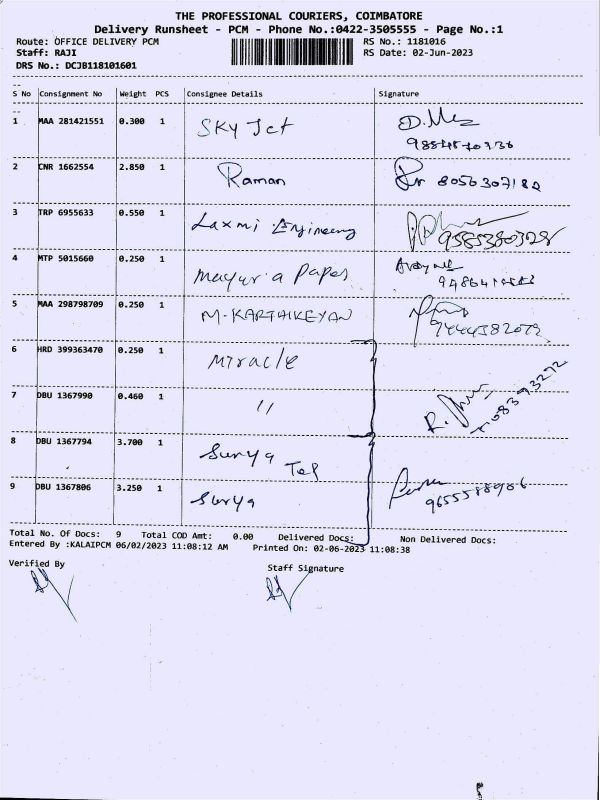 THE PROFESSIONAL COURIERS, COIMBATORE
Delivery Runsheet - PCM - Phone No.:0422-3505555 - Page No.:1
Route: OFFICE DELIVERY PCM RS No.: 1181016
Staff: RAJI RS Date: 02-Jun-2023
DRS No.: DCJB118101601
S No Consignment No Weight PCS Consignee Details Signature
1 MAA 281421551 0.300 1 Sky Jet
2 CNR 1662554 2.850 1 Raman 8056307182
3 TRP 6955633 0.550 1 Laxmi 9585380328
4 MTP 5015660 0.250 1 Mayura Paper
5 MAA 298798709 0.250 1 M-KARTHIKEYAN
6 HRD 399363470 0.250 1 Miracle
7 DBU 1367990 0.460 1 "
8 DBU 1367794 3.700 1 Surya Tel
9 DBU 1367806 3.250 1 Surya
Total No. Of Docs: 9 Total COD Amt: 0.00 Delivered Docs: Non Delivered Docs:
Entered By :KALAIPCM 06/02/2023 11:08:12 AM Printed On: 02-06-2023 11:08:38
Verified By Staff Signature